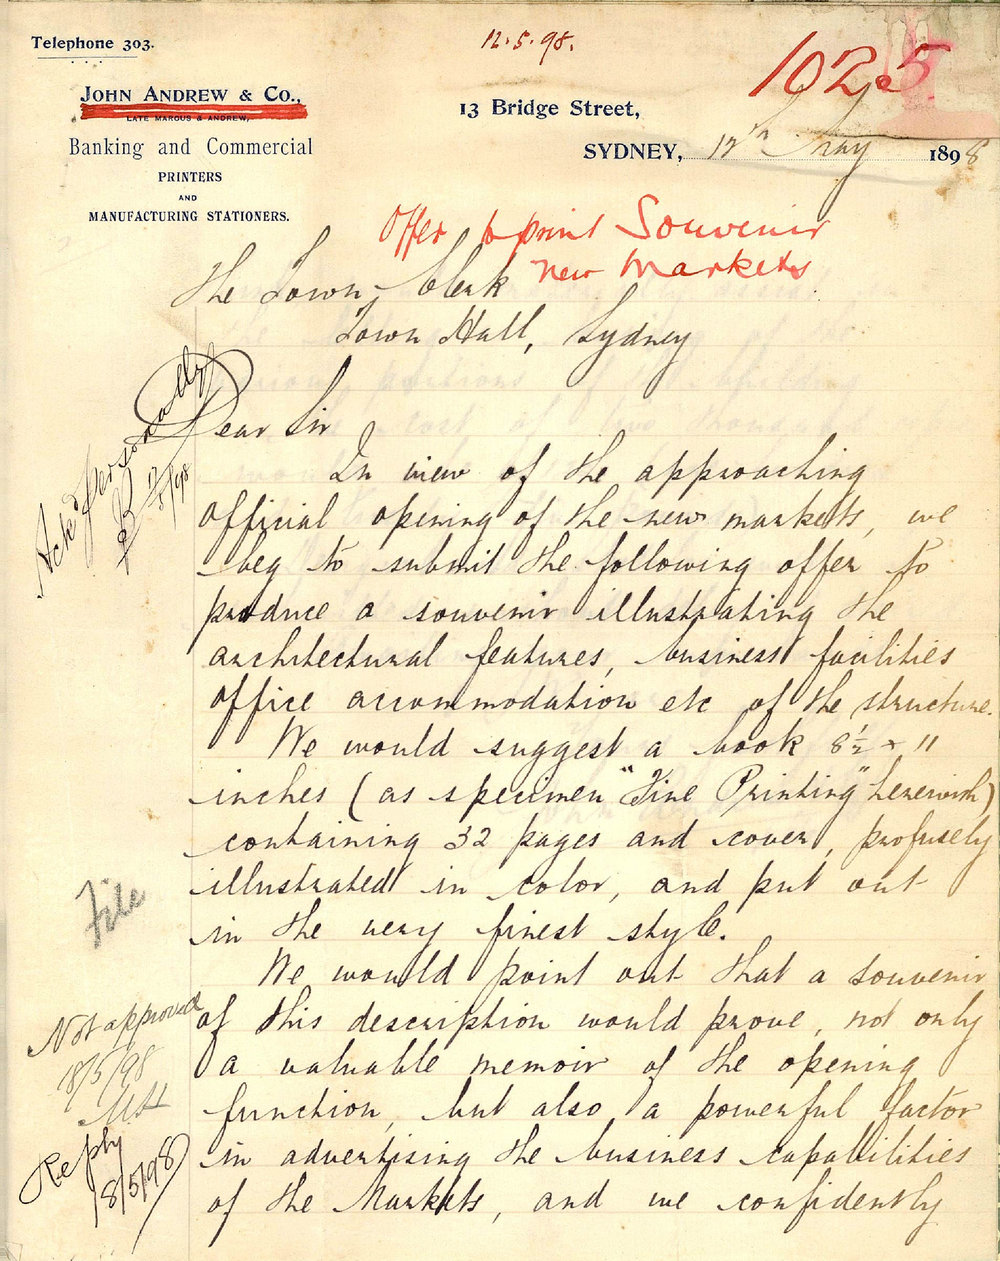 Telephone 303.
12.5.98.
1025
JOHN ANDREW & CO.,
LATE MARCUS & ANDREW,
Banking and Commercial
PRINTERS
AND
MANUFACTURING STATIONERS.
13 Bridge Street,
SYDNEY, 12th May 1898
Offer to print Souvenir
New Markets
The Town Clerk
Town Hall, Sydney
Ackd Personally
17/5/98
Dear Sir
In view of the approaching
official opening of the new markets, we
beg to submit the following offer to
produce a souvenir illustrating the
architectural features, business facilities
office accommodation etc of the structure.
We would suggest a book 8½ x 11
inches (as specimen "Fine Printing" herewith)
containing 32 pages and cover, profusely
illustrated in color, and put out
in the very finest style.
We would point out that a souvenir
of this description would prove, not only
a valuable memoir of the opening
function, but also, a powerful factor
in advertising the business capabilities
of the Markets, and we confidently
File
Not approved
18/5/98
Reply
18/5/98